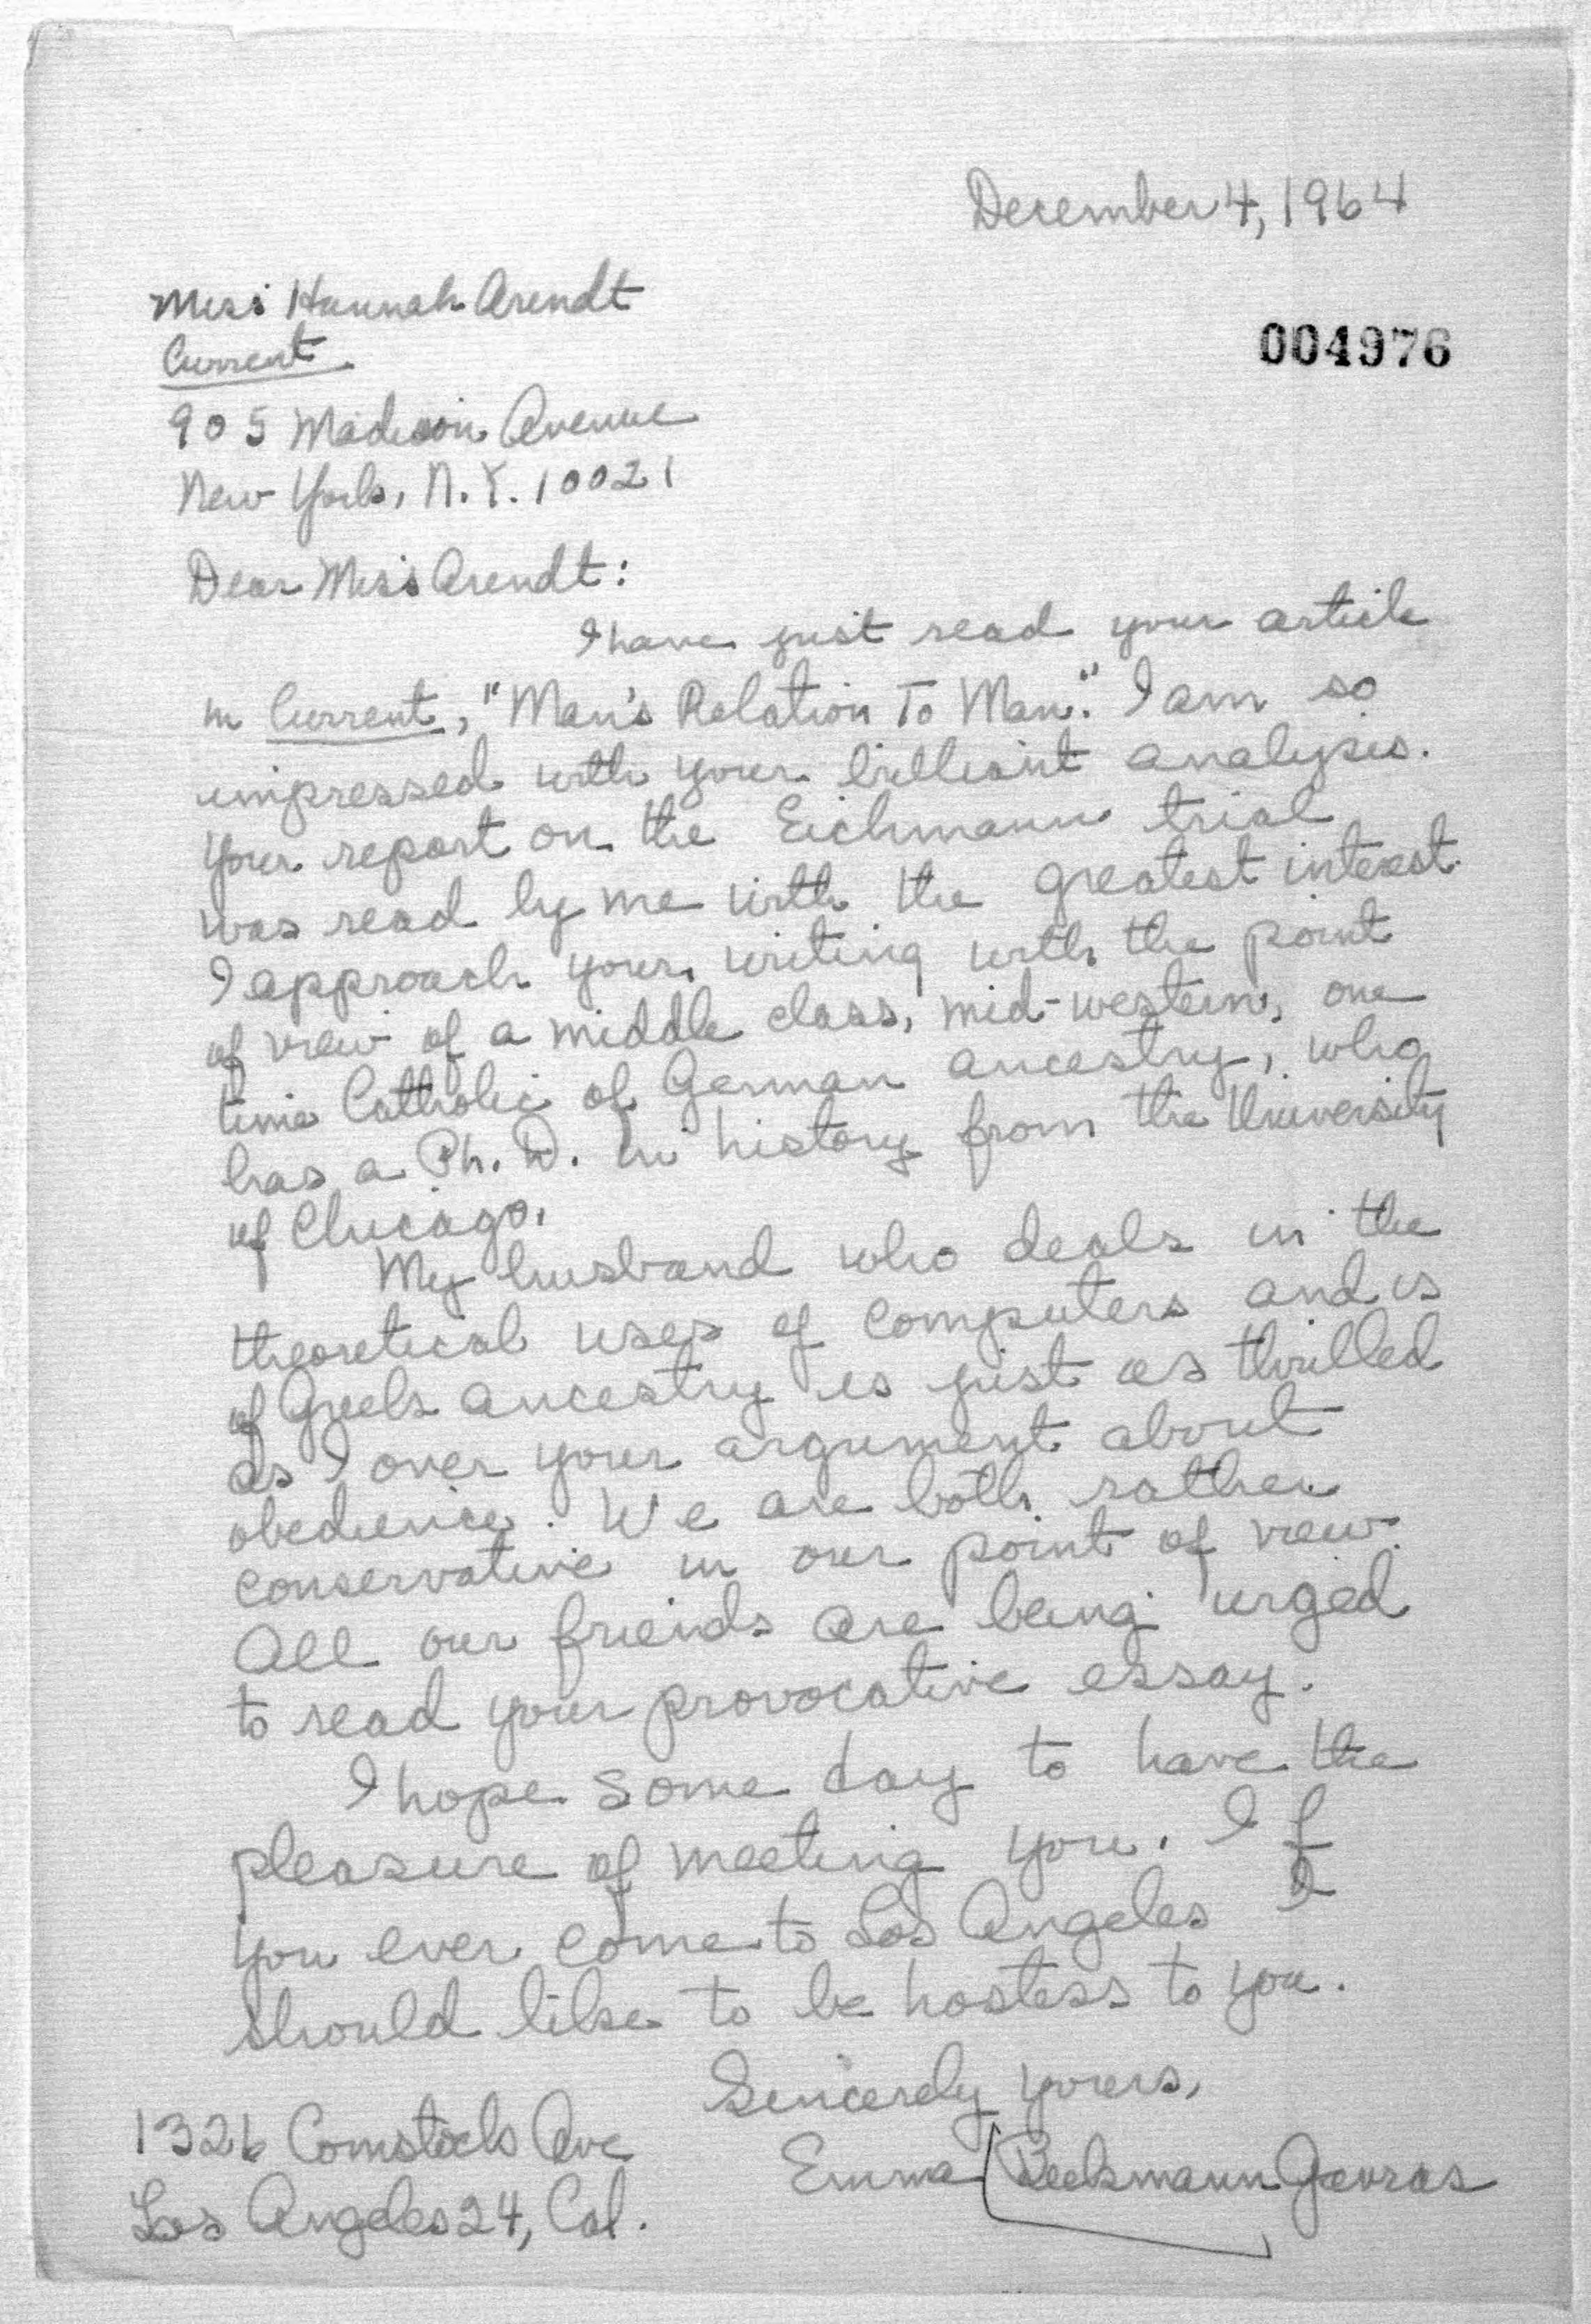 December 4, 1964
Miss Hannah Arendt
Current
004976
905 Madison Avenue
New York, N.Y. 10021
Dear Miss Arendt:
I have just read your article
in Current, "Man's Relation To Man." I am so
impressed with your brilliant analysis.
Your report on the Eichmann trial
was read by me with the greatest interest.
I approach your writing with the point
of view of a middle class, mid-western, one
time Catholic of German ancestry, who
has a Ph. D. in history from the University
of Chicago.
My husband who deals in the
theoretical uses of computers and is
of Greek ancestry is just as thrilled
as I over your argument about
obedience. We are both rather
conservative in our point of view.
All our friends are being urged
to read your provocative essay.
I hope some day to have the
pleasure of meeting you. If
you ever come to Los Angeles I
should like to be hostess to you.
Sincerely yours,
1326 Comstock Ave
Emma Beekmann Gavras
Los Angeles 24, Cal.